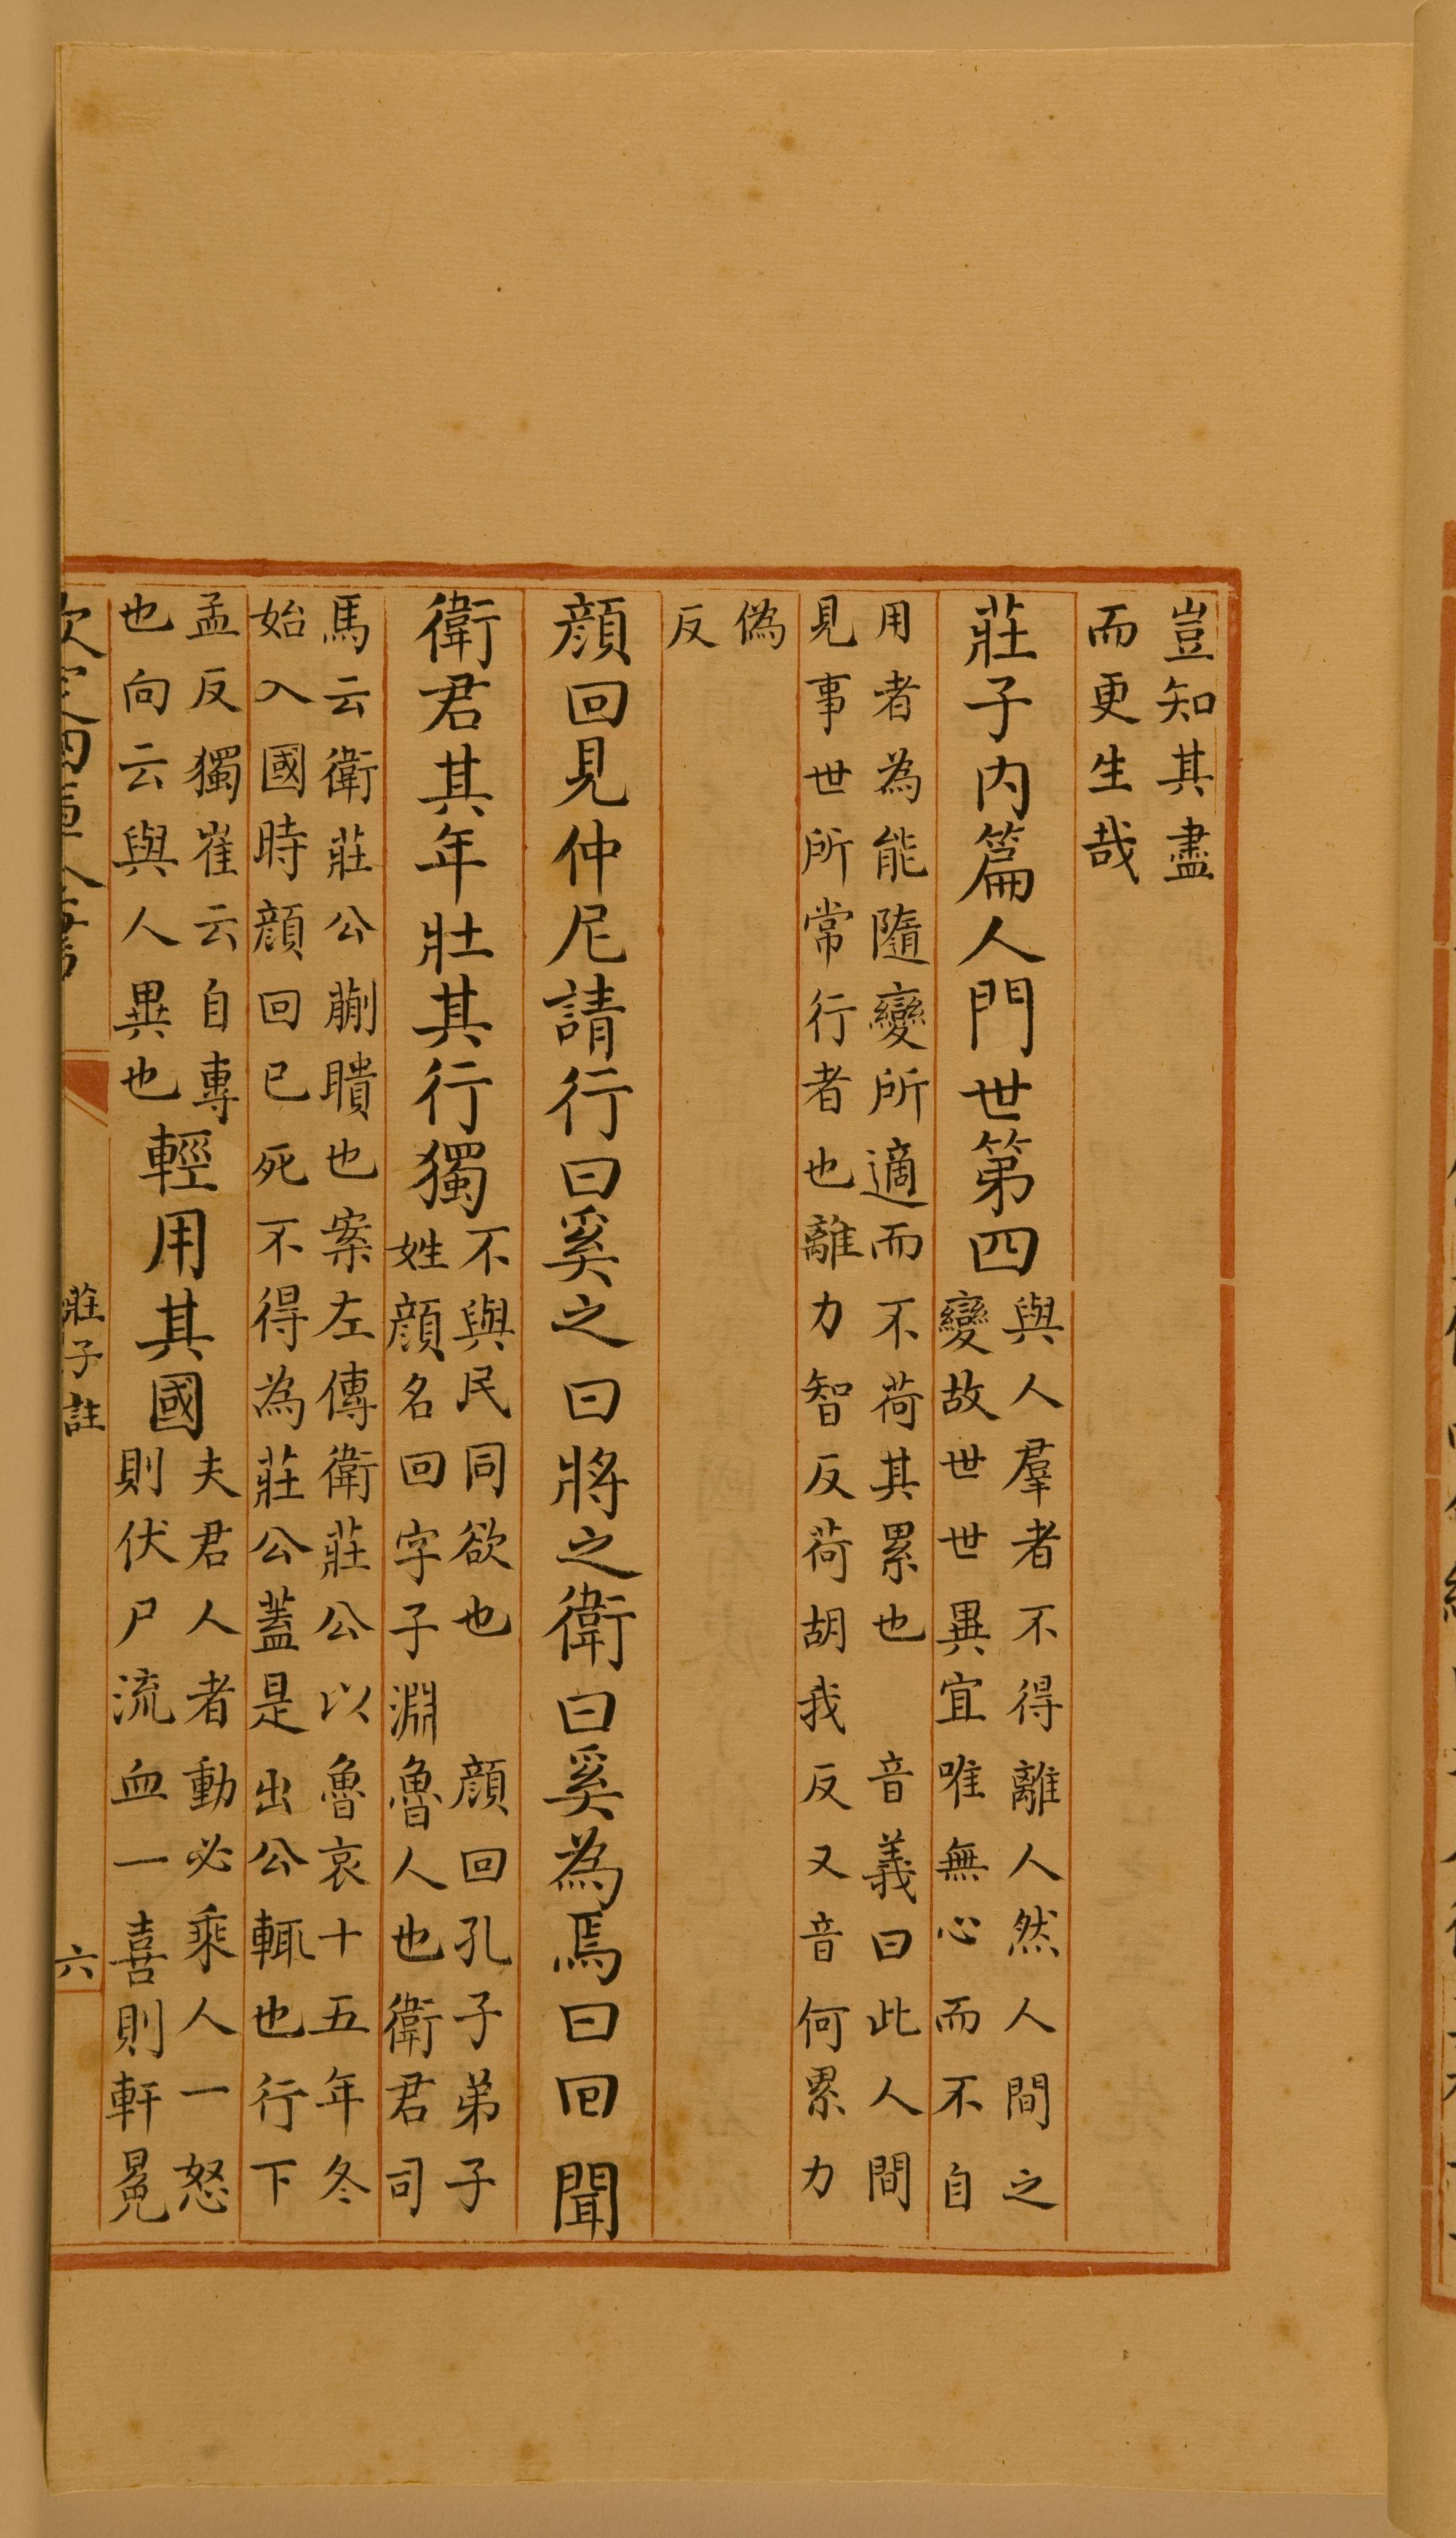 豈知其盡
而更生哉
莊子内篇人門世第四
與人羣者不得離人然人間之
變故世世異宜唯無心而不自
用者為能隨變所適而不荷其累也　音義曰此人間
見事世所常行者也離力智反荷胡我反又音何累力
偽
反
顔回見仲尼請行曰奚之曰將之衛曰奚為焉曰回聞
衛君其年壯其行獨
不與民同欲也　顔回孔子弟子
姓顔名回字子淵魯人也衛君司
馬云衛莊公蒯聵也案左傳衛莊公以魯哀十五年冬
始入國時顔回已死不得為莊公蓋是出公輒也行下
孟反獨崔云自專
也向云與人異也
輕用其國
夫君人者動必乘人一怒
則伏尸流血一喜則軒冕
欽定四庫全書
莊子註
六